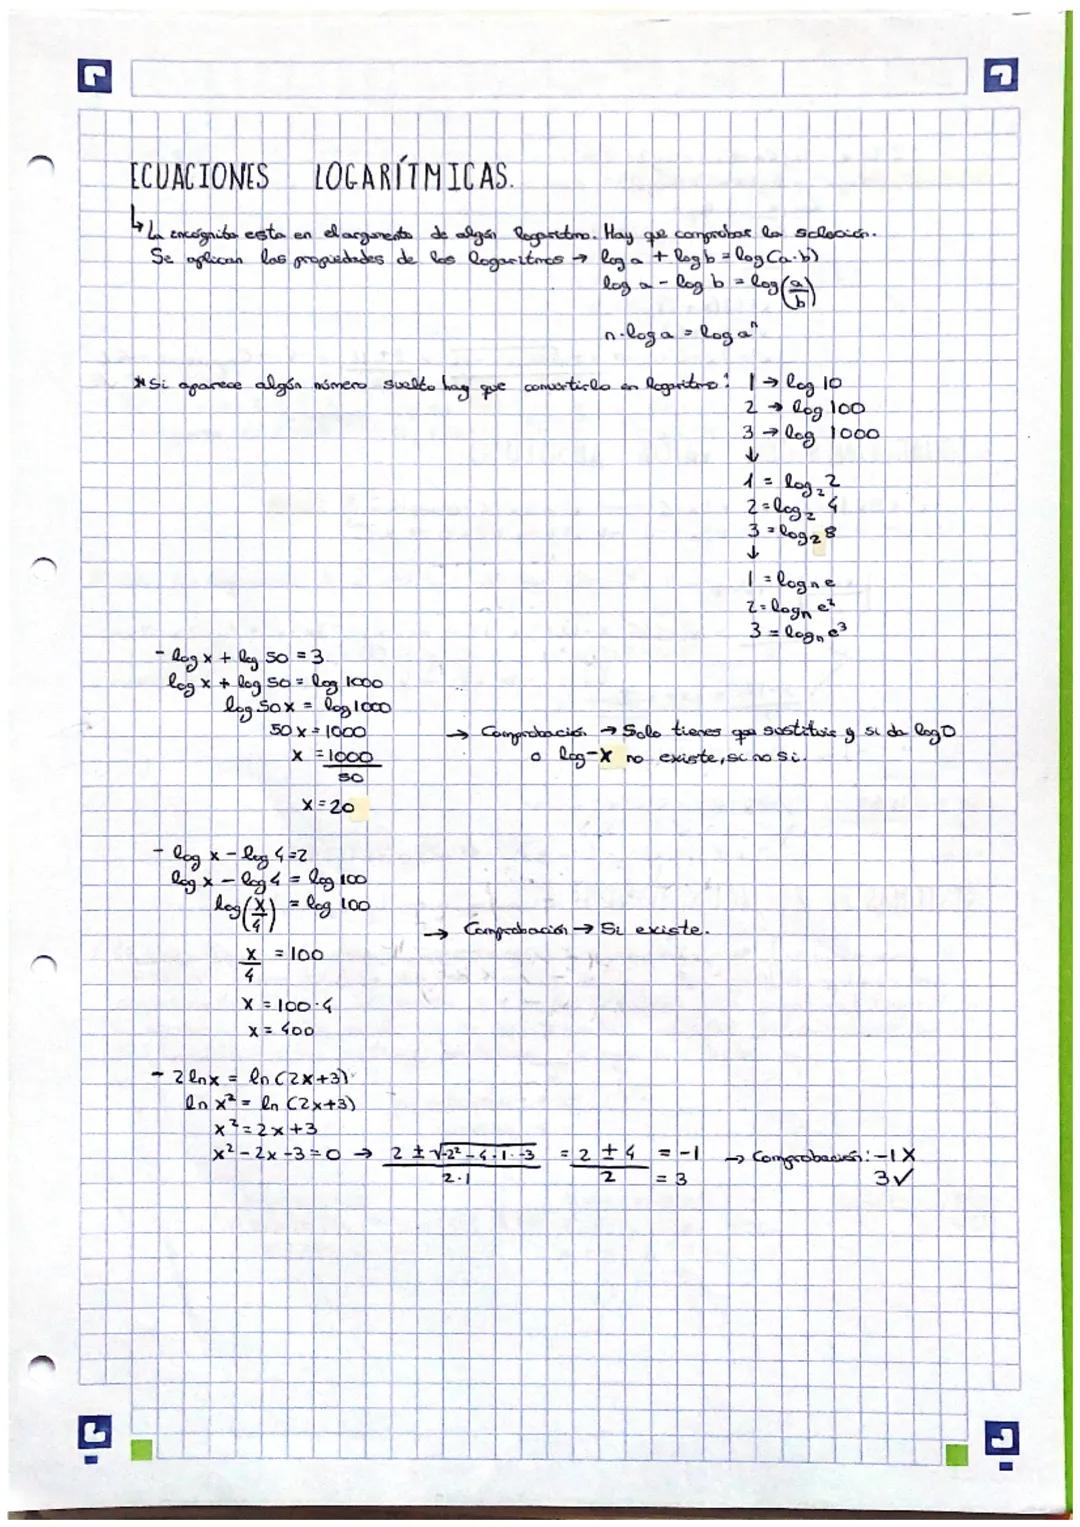 ECUACIONES LOGARÍTMICAS.
↳ La incógnita esta en el argumento de algún logaritmo. Hay que comprobar la solución.
Se aplican las propiedades de los logaritmos → log a + log b = log (a·b)
log a - log b = log (a/b)
n·log a = log aⁿ
*Si aparece algún número suelto hay que convertirlo en logaritmo: 1 → log 10
2 → log 100
3 → log 1000
↓
1 = log₂ 2
2 = log₂ 4
3 = log₂ 8
↓
1 = logₙ e
2 = logₙ e²
3 = logₙ e³
- log x + log 50 = 3
log x + log 50 = log 1000
log 50x = log 1000
50x = 1000 → Comprobación → Solo tienes que sustituir y si da log 0
x = 1000/50 o log -x no existe, si no si.
x = 20
- log x - log 4 = 2
log x - log 4 = log 100
log (x/4) = log 100
→ Comprobación → Si existe.
x/4 = 100
x = 100·4
x = 400
- 2 ln x = ln (2x+3)
ln x² = ln (2x+3)
x² = 2x+3
x² - 2x - 3 = 0 → (2 ± √-2² - 4·1·-3)/(2·1) = (2 ± 4)/2 = -1 → Comprobación: -1 X
= 3 3 ✓